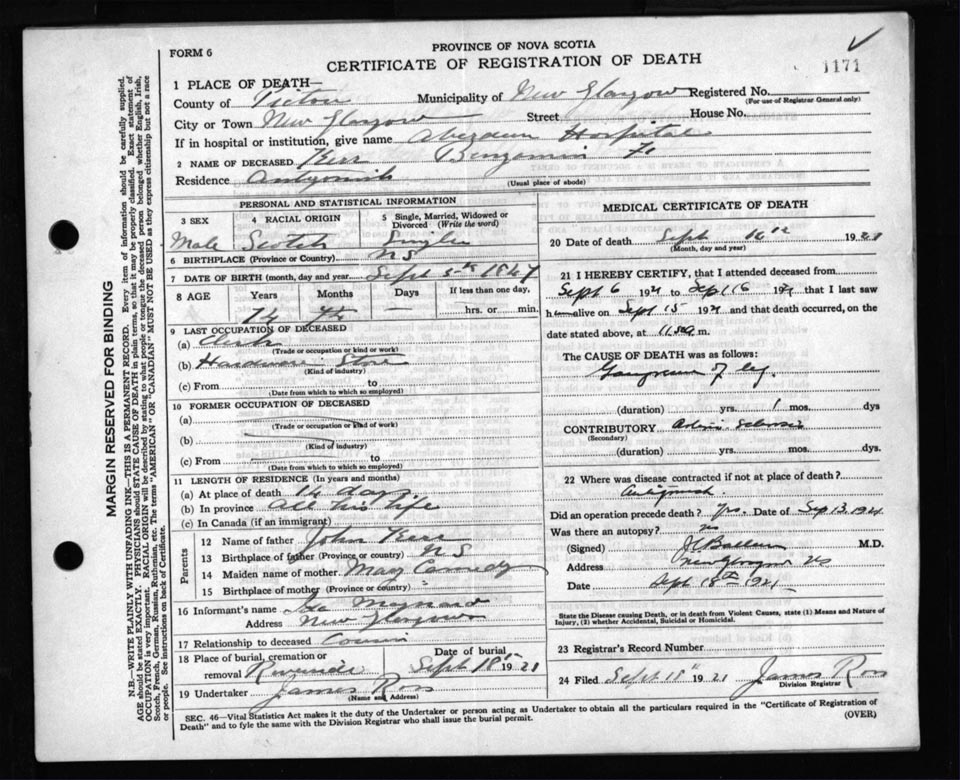 FORM 6
PROVINCE OF NOVA SCOTIA
CERTIFICATE OF REGISTRATION OF DEATH
1171
1 PLACE OF DEATH—
County of Pictou Municipality of New Glasgow Registered No.
(For use of Registrar General only)
City or Town New Glasgow Street House No.
If in hospital or institution, give name Aberdeen Hospital
2 NAME OF DECEASED Kerr Benjamin
Residence Antigonish
(Usual place of abode)
PERSONAL AND STATISTICAL INFORMATION
3 SEX 4 RACIAL ORIGIN 5 Single, Married, Widowed or Divorced (Write the word)
Male Scotch Single
6 BIRTHPLACE (Province or Country) NS
7 DATE OF BIRTH (month, day and year) Sept 5th 1847
8 AGE Years Months Days If less than one day,
74 hrs. or min.
9 LAST OCCUPATION OF DECEASED
(a) Clerk
(Trade or occupation or kind or work)
(b) Hardware Store
(Kind of industry)
(c) From to
(Date from which to which so employed)
10 FORMER OCCUPATION OF DECEASED
(a)
(Trade or occupation or kind of work)
(b)
(Kind of industry)
(c) From to
(Date from which to which so employed)
11 LENGTH OF RESIDENCE (In years and months)
(a) At place of death 14 days
(b) In province All his life
(c) In Canada (if an immigrant)
Parents
12 Name of father John Kerr
13 Birthplace of father (Province or country) NS
14 Maiden name of mother Mary
15 Birthplace of mother (Province or country) "
16 Informant's name
Address New Glasgow
17 Relationship to deceased Cousin
18 Place of burial, cremation or removal Riverside Date of burial Sept 18th 1921
19 Undertaker James Ross
(Name and Address)
MEDICAL CERTIFICATE OF DEATH
20 Date of death Sept 16th 1921
(Month, day and year)
21 I HEREBY CERTIFY, that I attended deceased from
Sept 6 1921 to Sept 16 1921 that I last saw
him alive on Sept 15 1921 and that death occurred, on the
date stated above, at m.
The CAUSE OF DEATH was as follows:
Gangrene of leg.
(duration) yrs. 1 mos. dys
CONTRIBUTORY
(Secondary)
(duration) yrs. mos. dys.
22 Where was disease contracted if not at place of death?
Antigonish
Did an operation precede death? Yes. Date of Sep 13. 1921
Was there an autopsy? no
(Signed) M.D.
Address New Glasgow NS
Date Sept 18th 1921
State the Disease causing Death, or in death from Violent Causes, state (1) Means and Nature of Injury, (2) whether Accidental, Suicidal or Homicidal.
23 Registrar's Record Number
24 Filed Sept 18" 1921 James Ross
Division Registrar
SEC. 46—Vital Statistics Act makes it the duty of the Undertaker or person acting as Undertaker to obtain all the particulars required in the "Certificate of Registration of
Death" and to fyle the same with the Division Registrar who shall issue the burial permit.
(OVER)
MARGIN RESERVED FOR BINDING
N.B.—WRITE PLAINLY WITH UNFADING INK—THIS IS A PERMANENT RECORD. Every item of information should be carefully supplied.
AGE should be stated EXACTLY. PHYSICIANS should STATE CAUSE OF DEATH in plain terms, so that it may be properly classified. Exact statement of
OCCUPATION is very important. RACIAL ORIGIN will be described by stating to what people or tongue the deceased person belonged whether English, Irish,
Scotch, French, German, Russian, Ruthenian, etc. The terms "AMERICAN" or "CANADIAN" MUST NOT BE USED as they express citizenship but not a race
or people. See instructions on back of Certificate.